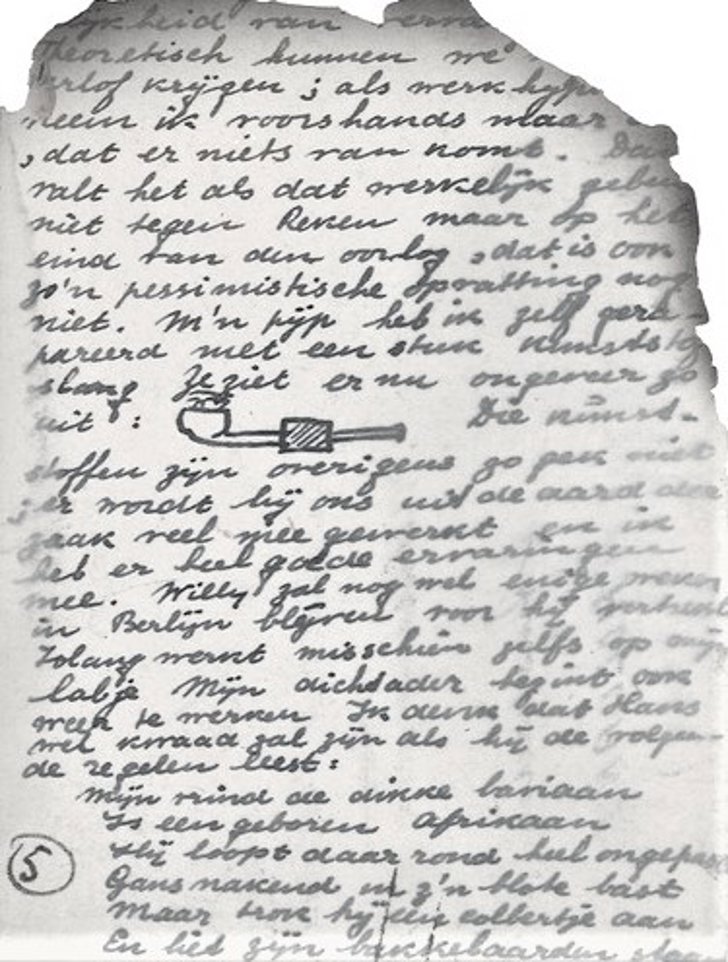 kheid van
Theoretisch kunnen we
krijgen ; als werkhyp
neem ik voorshands maar
, dat er niets van komt. Da
valt het als dat werkelijk gebeu
niet tegen Reken maar op het
eind van den oorlog , dat is ook
zo'n pessimistische opvatting nog
niet. M'n pijp heb ik zelf gere-
pareerd met een stuk kunststof
slang Je ziet er nu ongeveer zo
uit :
Die kunst-
stoffen zijn overigens zo gek niet
; er wordt bij ons uit de aard der
zaak veel mee gewerkt en ik
heb er heel goede ervaringen
mee. Willy zal nog wel enige weken
in Berlijn blijven voor hij vertrekt
Zolang werkt misschien zelfs op mijn
labje Mijn dichtader begint ook
weer te werken Ik denk dat Hans
wel kwaad zal zijn als hij de volgen-
de regelen leest:
Mijn vrind de dikke baviaan
Is een geboren Afrikaan
Hij loopt daar rond heel ongepast
Gans nakend in z'n blote bast
Maar trok hij een colbertje aan
En liet zijn bakkebaarden staan
5